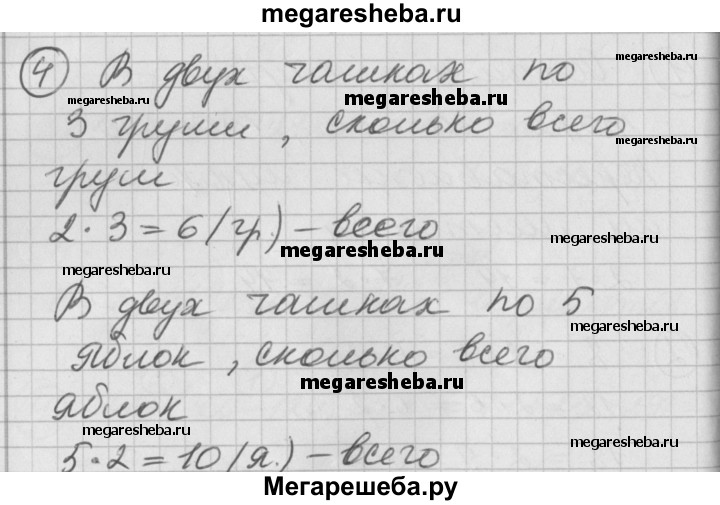 megaresheba.ru
4 В двух чашках по
megaresheba.ru
megaresheba.ru
megaresheba.ru
3 груши, сколько всего
megaresheba.ru
груш
2 · 3 = 6 (гр.) – всего
megaresheba.ru
megaresheba.ru
megaresheba.ru
В двух чашках по 5
megaresheba.ru
яблок, сколько всего
megaresheba.ru
яблок
megaresheba.ru
megaresheba.ru
5 · 2 = 10 (я.) – всего
Мегарешеба.ру